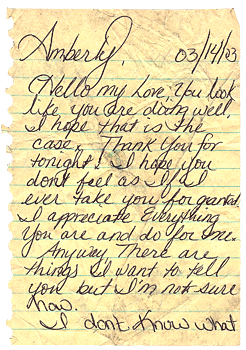 Amberly, 03/14/03
Hello my Love, You look
like you are doing well,
I hope that is the
case. Thank You for
tonight! I hope you
dont feel as if I
ever take you for granted.
I appreciate Everything
You are and do for me.
Anyway There are
things I want to tell
you but I'm not sure
how.
I dont know what